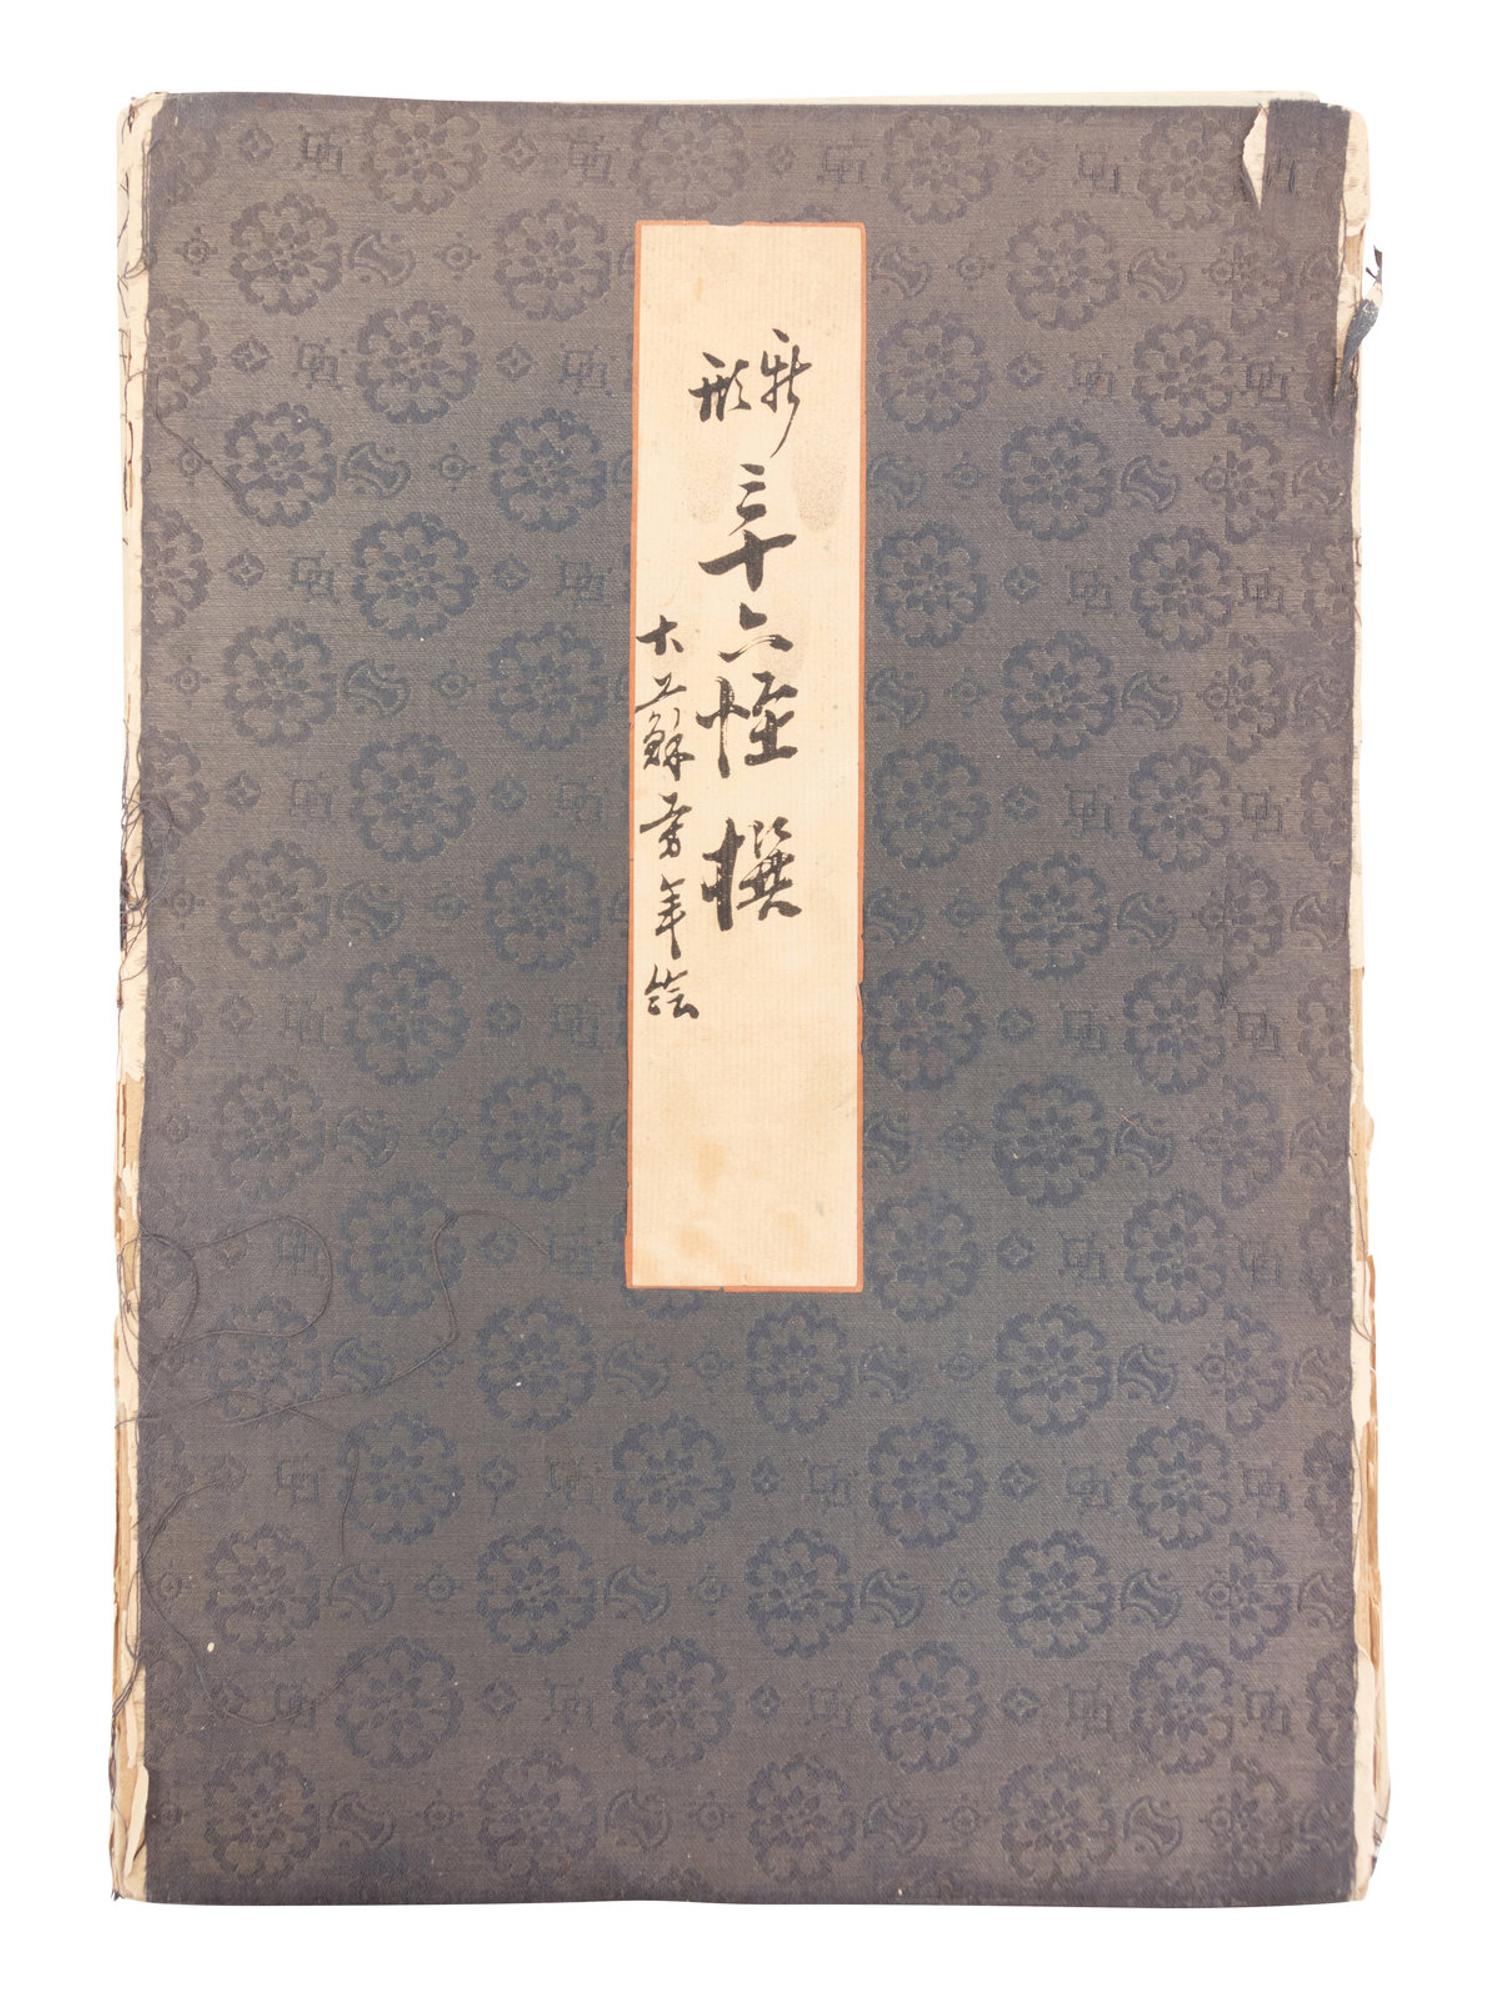 新形三十六怪撰
大蘇芳年絵